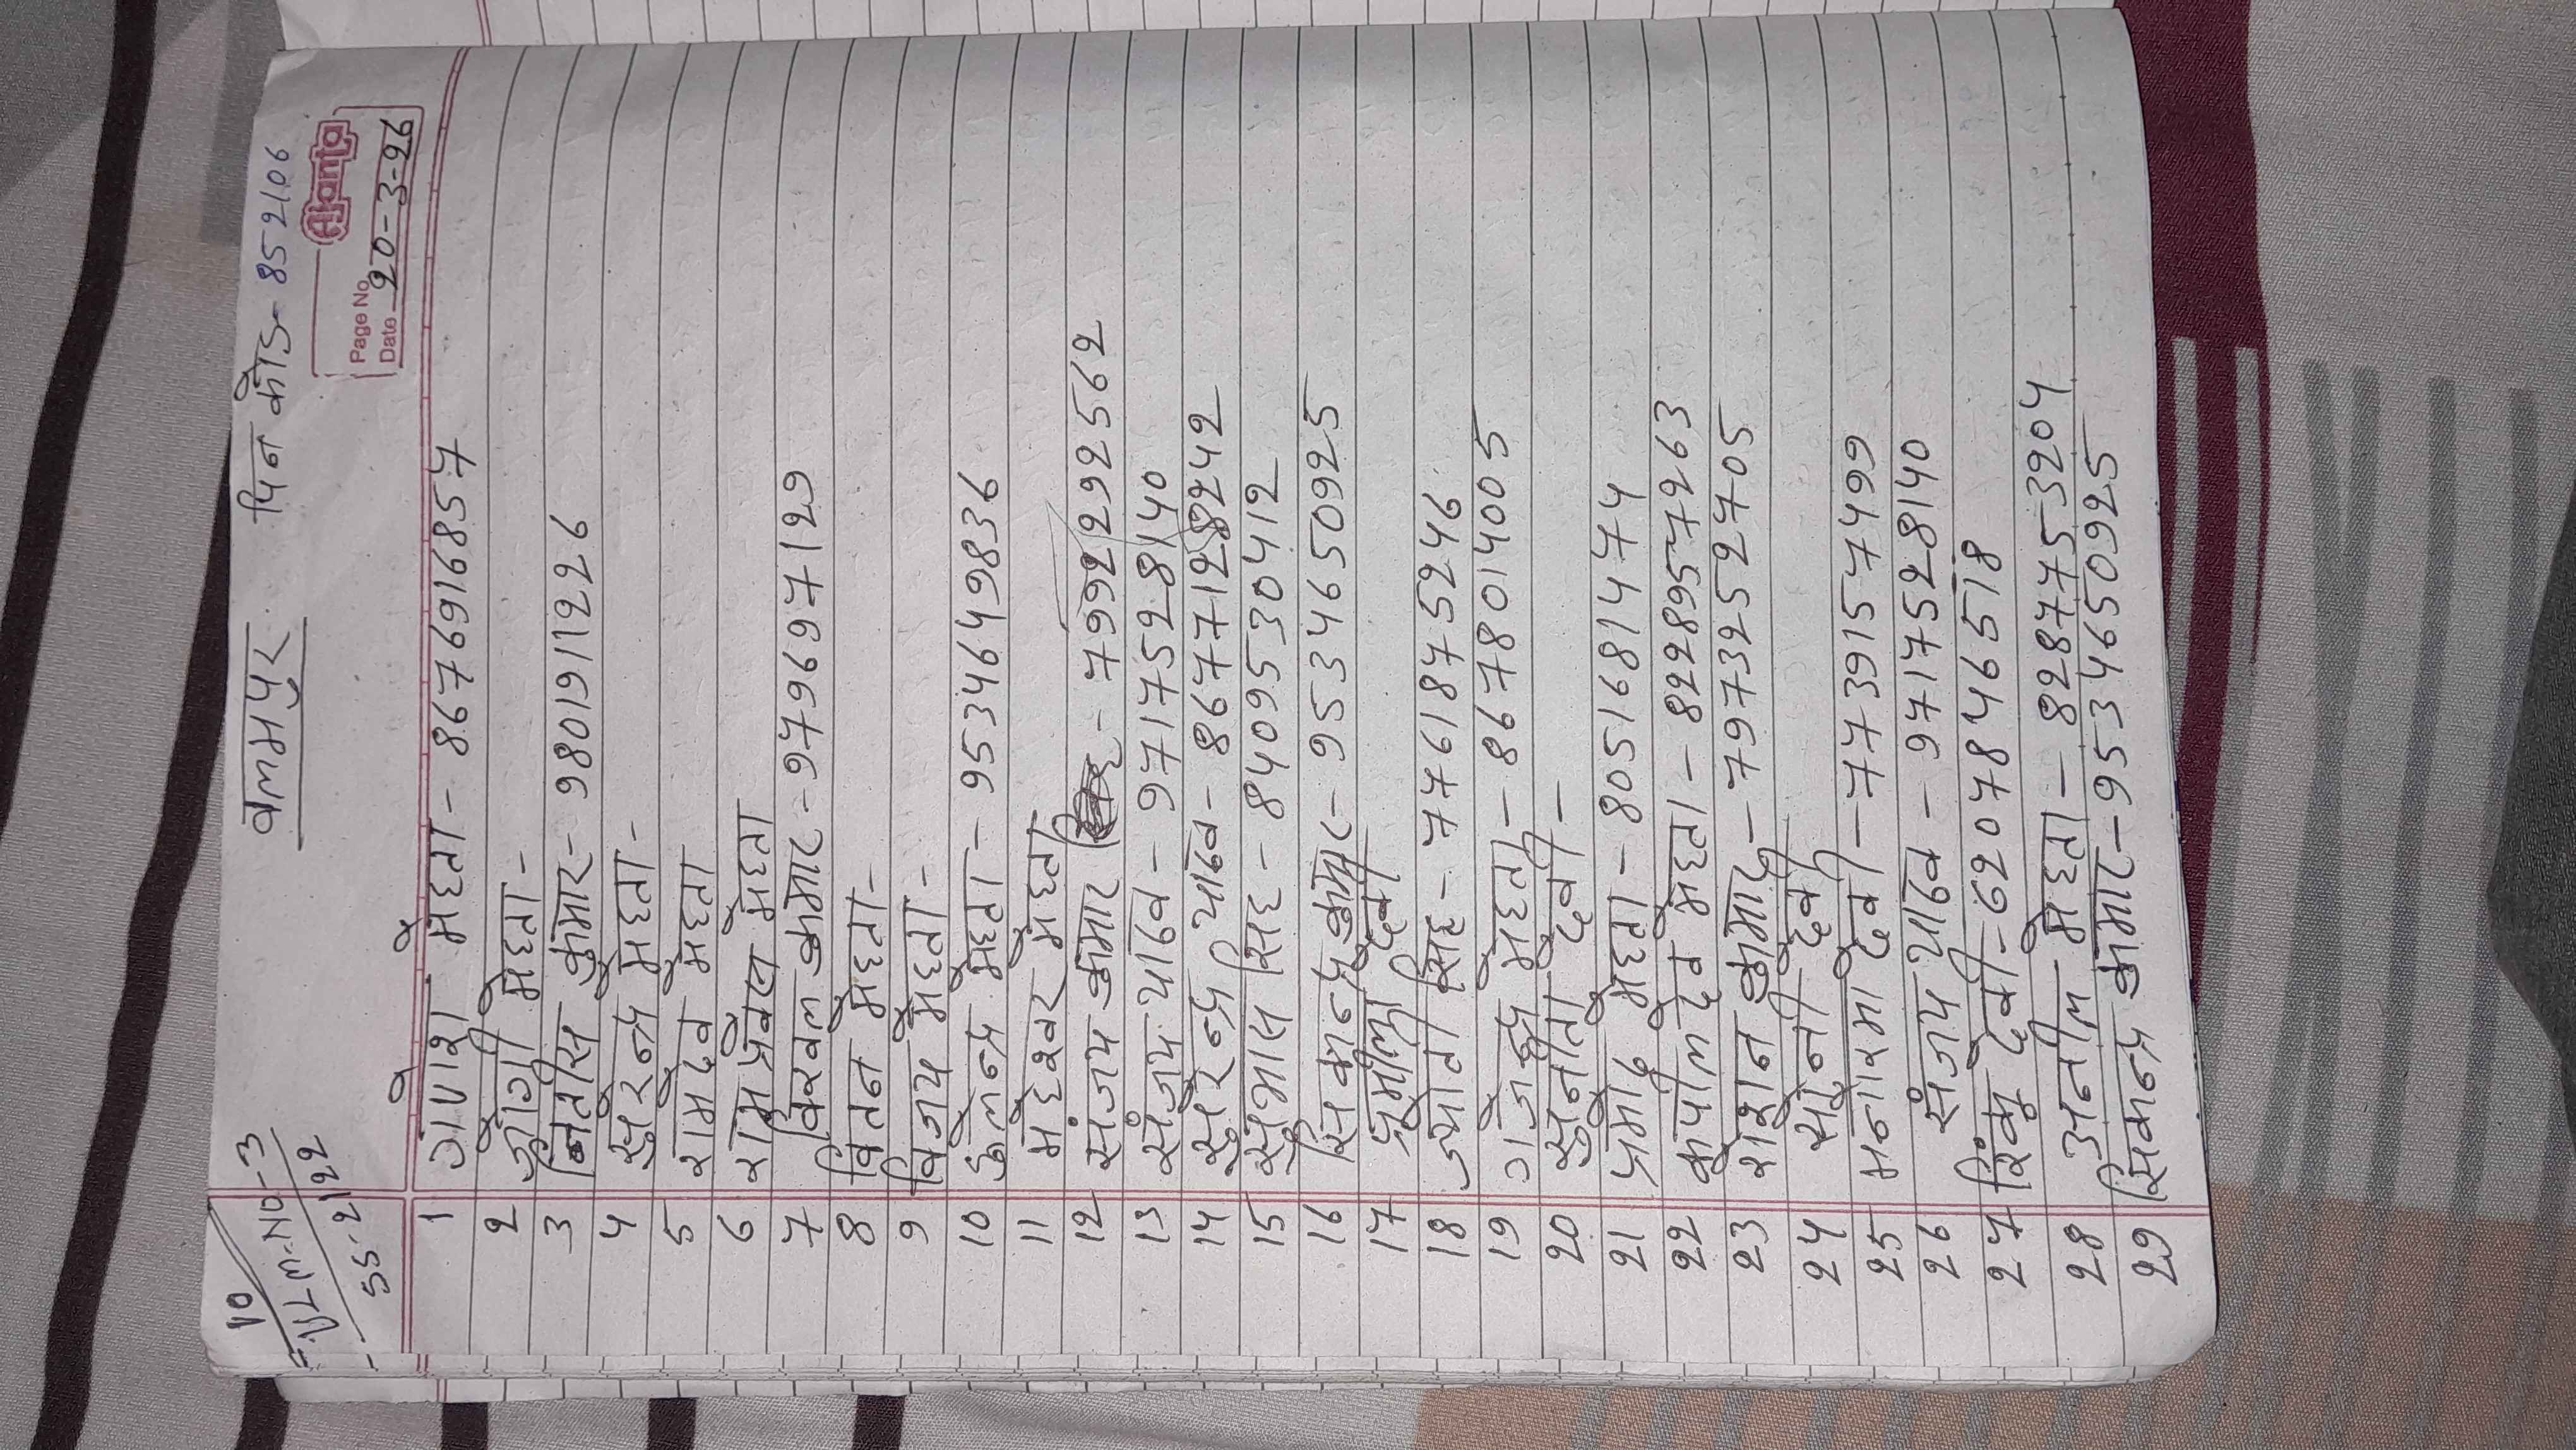 10
VLM-NO-3
55-2122
बलभपुर पिन कोड- 852106
Ajanta
Page No.
Date 20-3-26
1 गणेश मेहता - 8676916857
2 जोगी मेहता -
3 नितीस कुमार - 9801911226
4 सुरेन्द्र मेहता -
5 रामदेव मेहता
6 राम प्रवेश मेहता
7 विरबल कुमार - 9796697129
8 वितन मेहता -
9 विजय मेहता -
10 फुलेन्द्र मेहता - 9534649836
11 महेश्वर मेहता
12 संजय कुमार - 7992292562
13 संजय यादव - 9717528140
14 सुरेन्द्र यादव - 8677128242
15 सुभास सिंह - 8409530412
16 सिकन्द्र कुमार - 9534650925
17 प्रमीला देवी
18 ज्योति सिंह - 7761875246
19 गजेन्द्र मेहता - 8678014005
20 सुनीता देवी -
21 प्रमोद मेहता - 8051681474
22 कपीलदेव मेहता - 8228957263
23 रोशन कुमार - 7973252705
24 सोनी देवी
25 मनोरमा देवी - 7739157499
26 संजय यादव - 9717528140
27 रिंकु देवी - 6207846518
28 अनील मेहता - 8287753204
29 सिकन्द्र कुमार - 9534650925